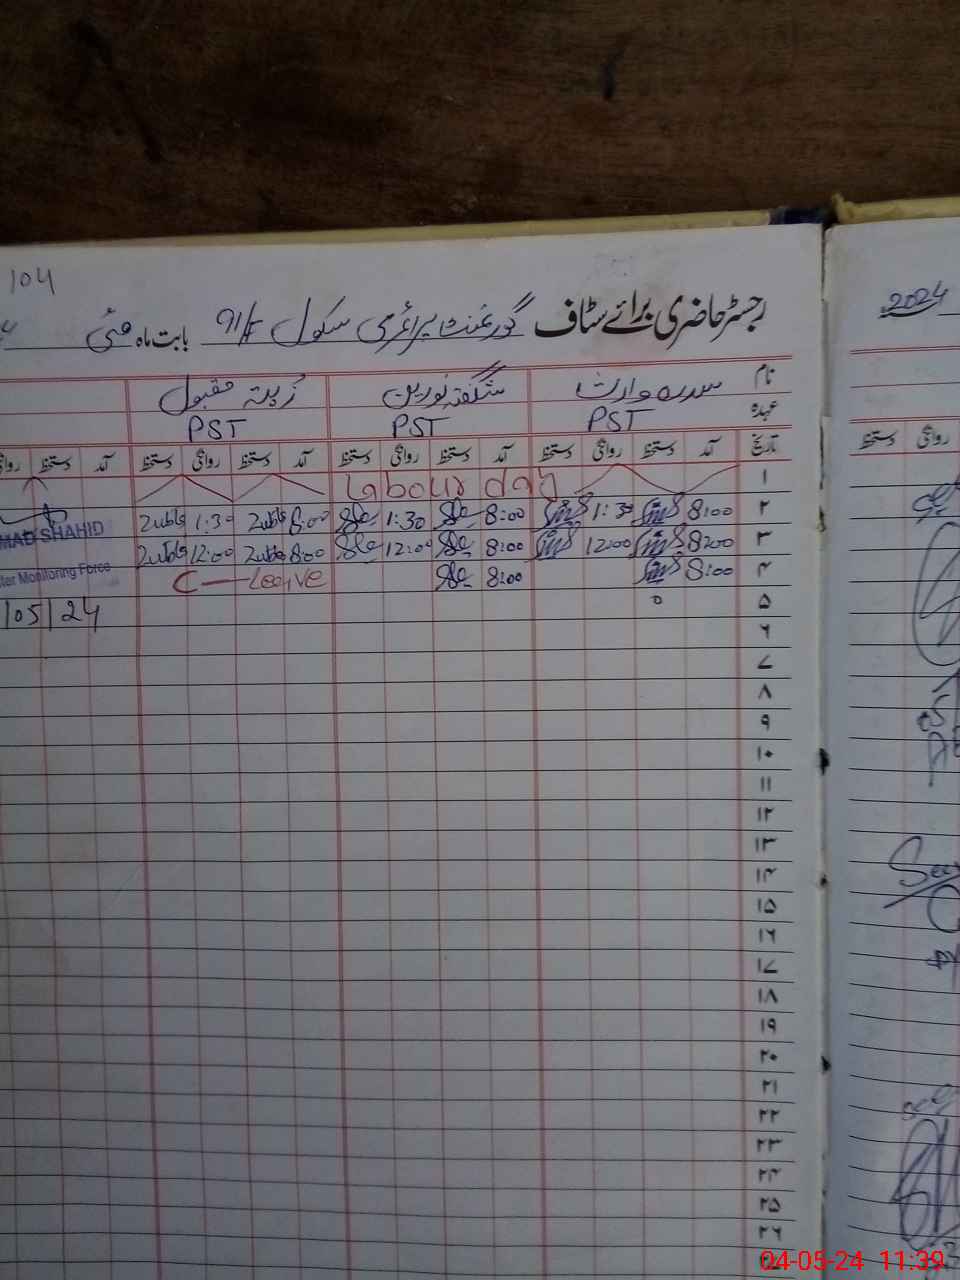 104
رجسٹر حاضری برائے سٹاف گورنمنٹ پرائمری سکول 91/F بابت ماہ مئی
2024
نام سدرہ وارث شگفتہ نورین زینت مقبول
عہدہ PST PST PST
تاریخ آمد دستخط روانگی دستخط آمد دستخط روانگی دستخط آمد دستخط روانگی دستخط آمد دستخط روانگی
روانگی دستخط
۱ Labour day
۲ 8:00 1:30 8:00 1:30 8:00 1:30
۳ 8:00 12:00 8:00 12:00 8:00 12:00
۴ 8:00 8:00 C Leeive
MAD SHAHID
Monitoring Force
/05/24
۵
۶
۷
۸
۹
۱۰
۱۱
۱۲
۱۳
۱۴
۱۵
۱۶
۱۷
۱۸
۱۹
۲۰
۲۱
۲۲
۲۳
۲۴
۲۵
۲۶
04-05-24 11:39